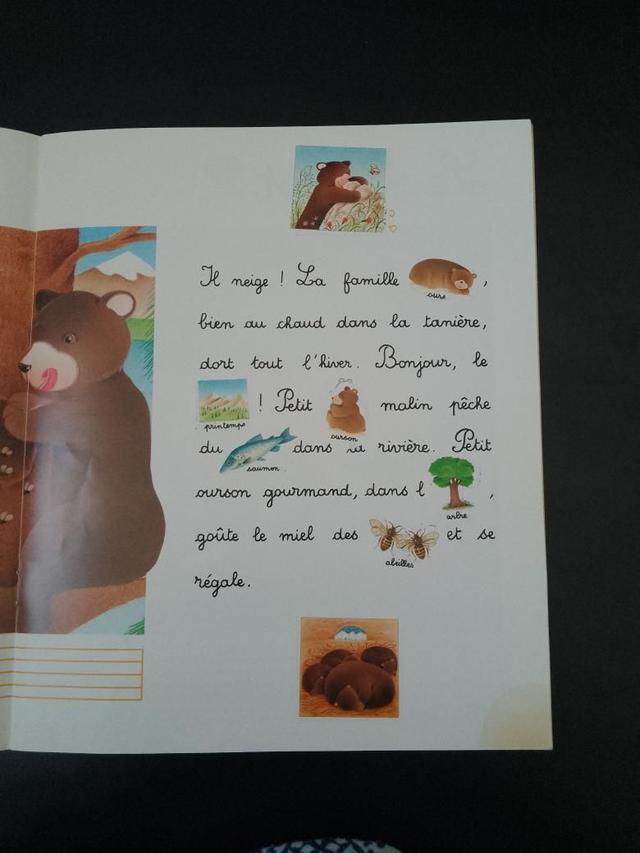 Il neige ! La famille ours,
bien au chaud dans la tanière,
dort tout l'hiver. Bonjour, le
printemps ! Petit ourson malin pêche
du saumon dans la rivière. Petit
ourson gourmand, dans l'arbre,
goûte le miel des abeilles et se
régale.